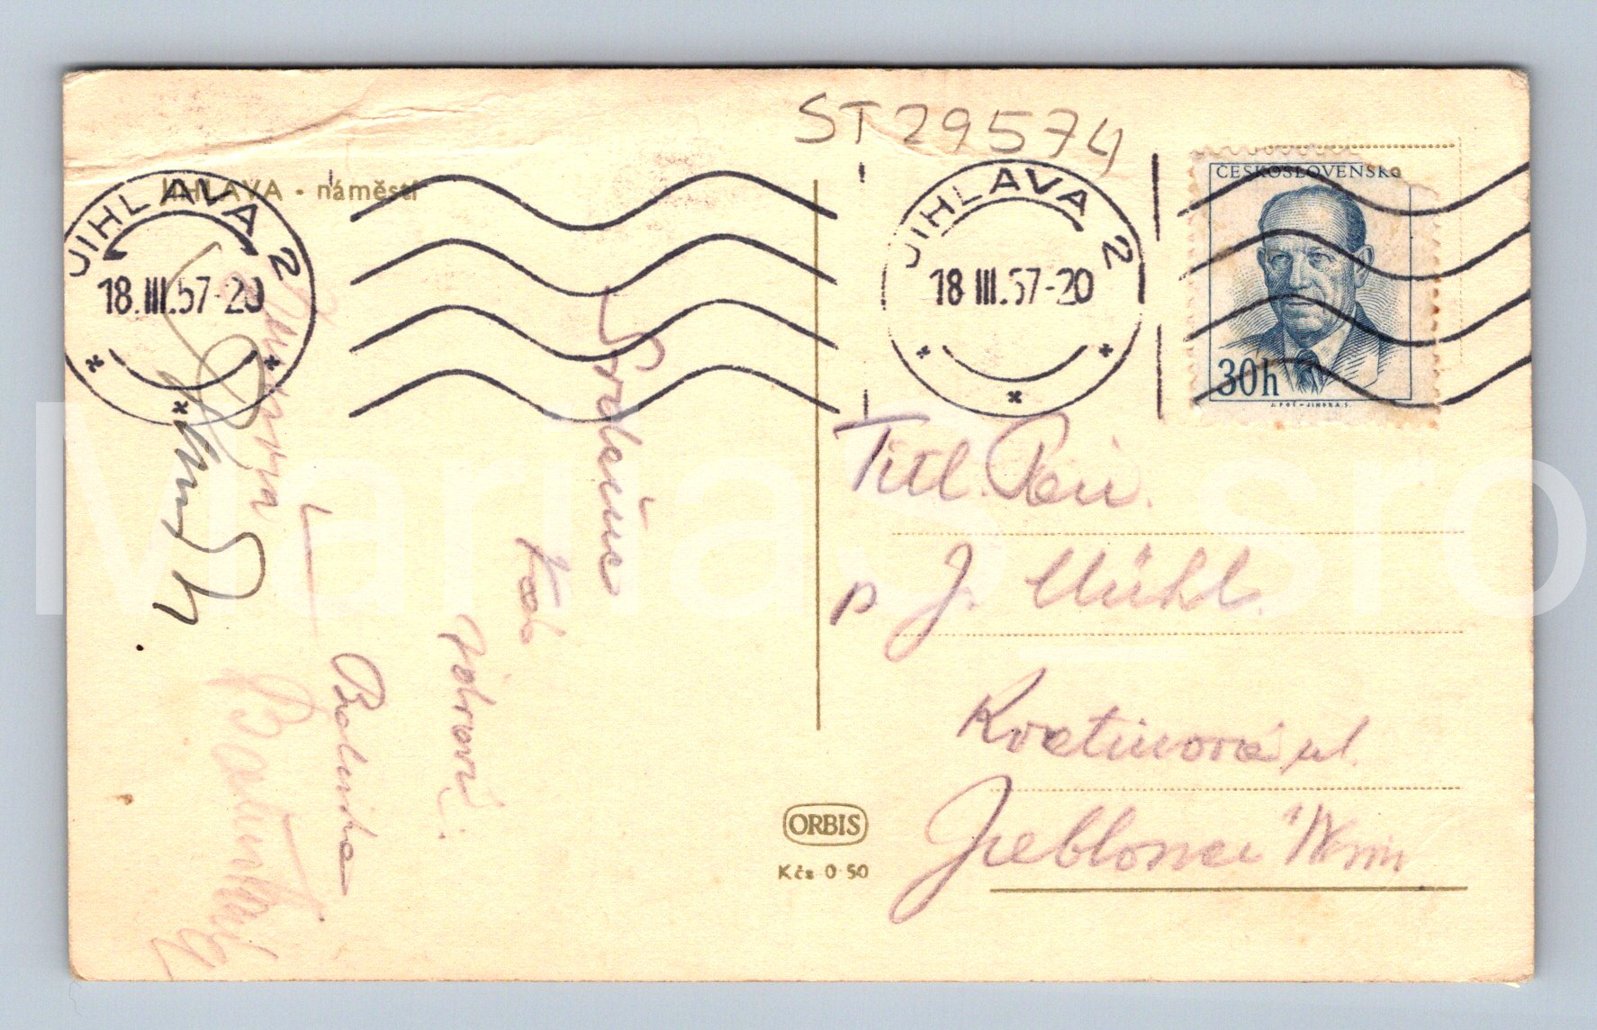 ST29574
JIHLAVA - náměstí
JIHLAVA 2
18.III.57-20
JIHLAVA 2
18.III.57-20
ČESKOSLOVENSKO
30h
Srdečně
Vás
zdraví
Titl. Paní.
p J. Mühl.
Květinová ul
Jablonec
ORBIS
Kčs 0·50
MartiaS_sro